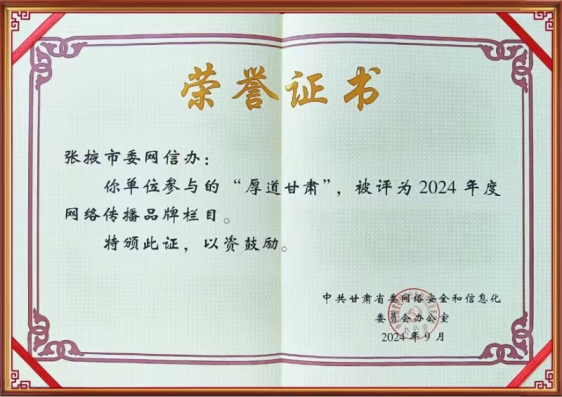 荣誉证书
张掖市委网信办：
你单位参与的“厚道甘肃”，被评为2024年度
网络传播品牌栏目。
特颁此证，以资鼓励。
中共甘肃省委网络安全和信息化
委员会办公室
2024年9月